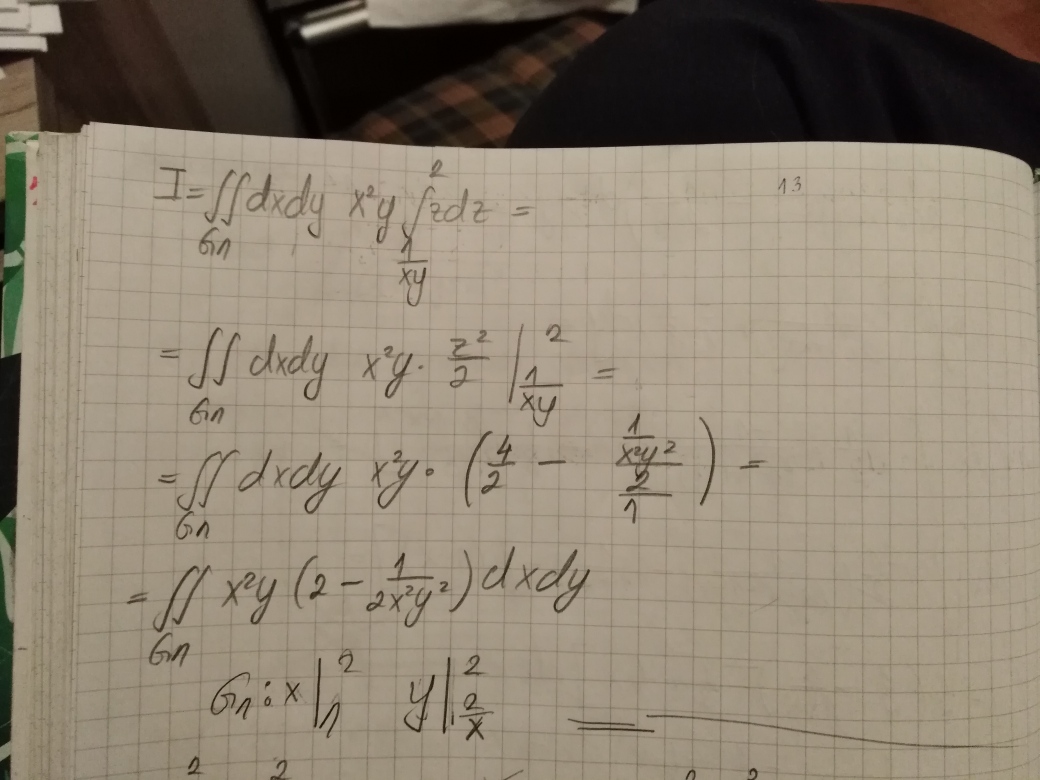 13
I = ∬_{G₁} dxdy x²y ∫_{1/xy}^{2} zdz =
= ∬_{G₁} dxdy x²y · z²/2 |_{1/xy}^{2} =
= ∬_{G₁} dxdy x²y · (4/2 − (1/x²y²)/(2/1)) =
= ∬_{G₁} x²y (2 − 1/2x²y²) dxdy
G₁ : x |_{1}^{2} y |_{2/x}^{2}
2 2 2 2